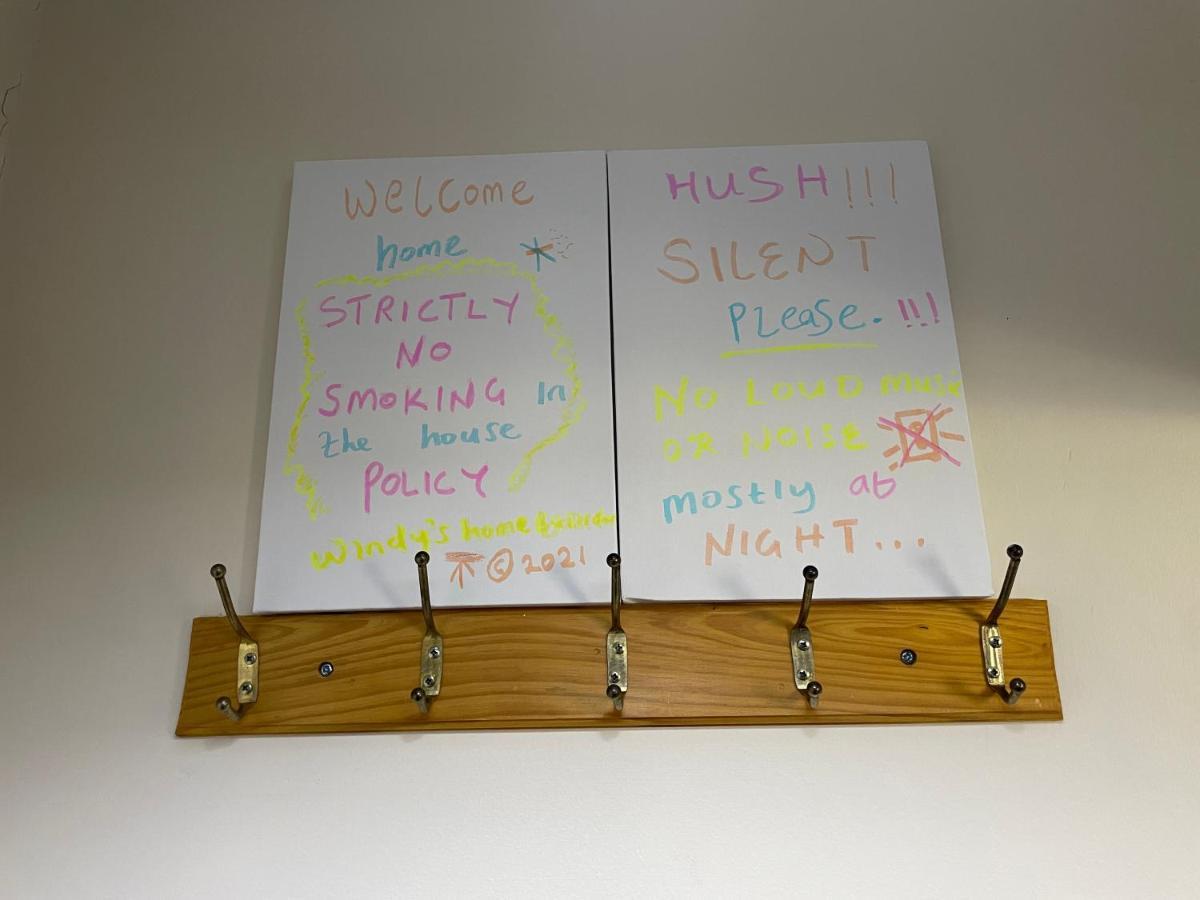 Welcome
home
STRICTLY
NO
SMOKING In
the house
POLICY
Windy's home
© 2021
HUSH!!!
SILENT
Please. !!!
NO LOUD music
OR NOISE
mostly at
NIGHT...